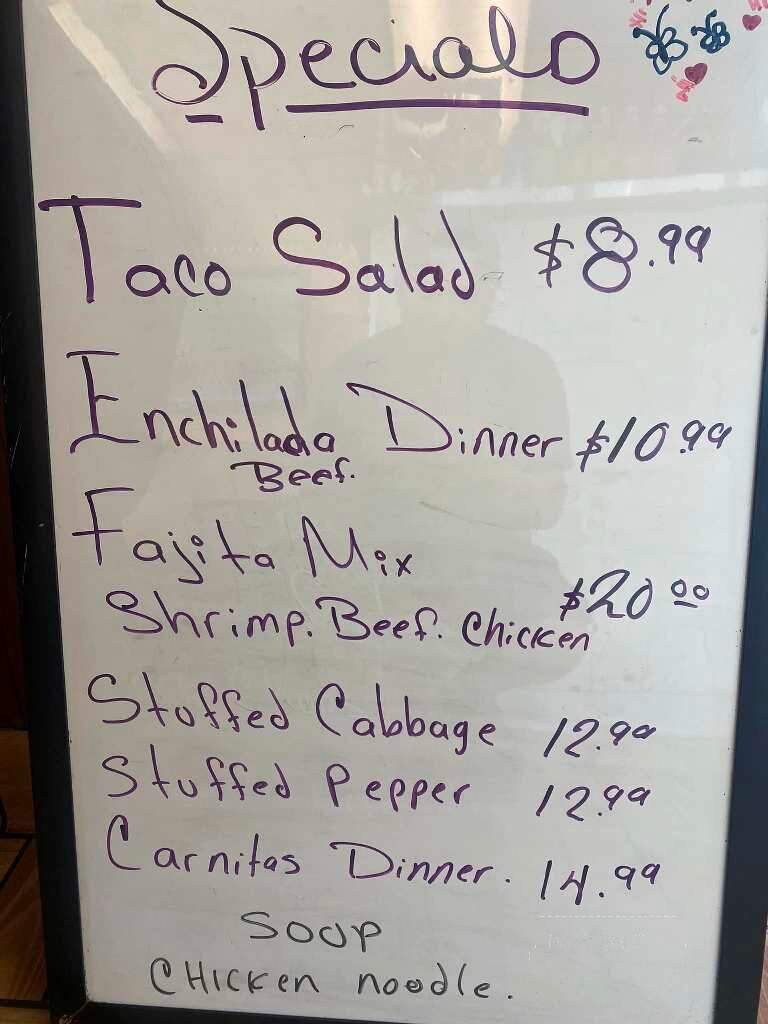 Specials
Taco Salad $8.99
Enchilada Dinner $10.99
Beef.
Fajita Mix
Shrimp. Beef. Chicken $20.00
Stuffed Cabbage 12.99
Stuffed Pepper 12.99
Carnitas Dinner. 14.99
SOUP
CHICKEN noodle.